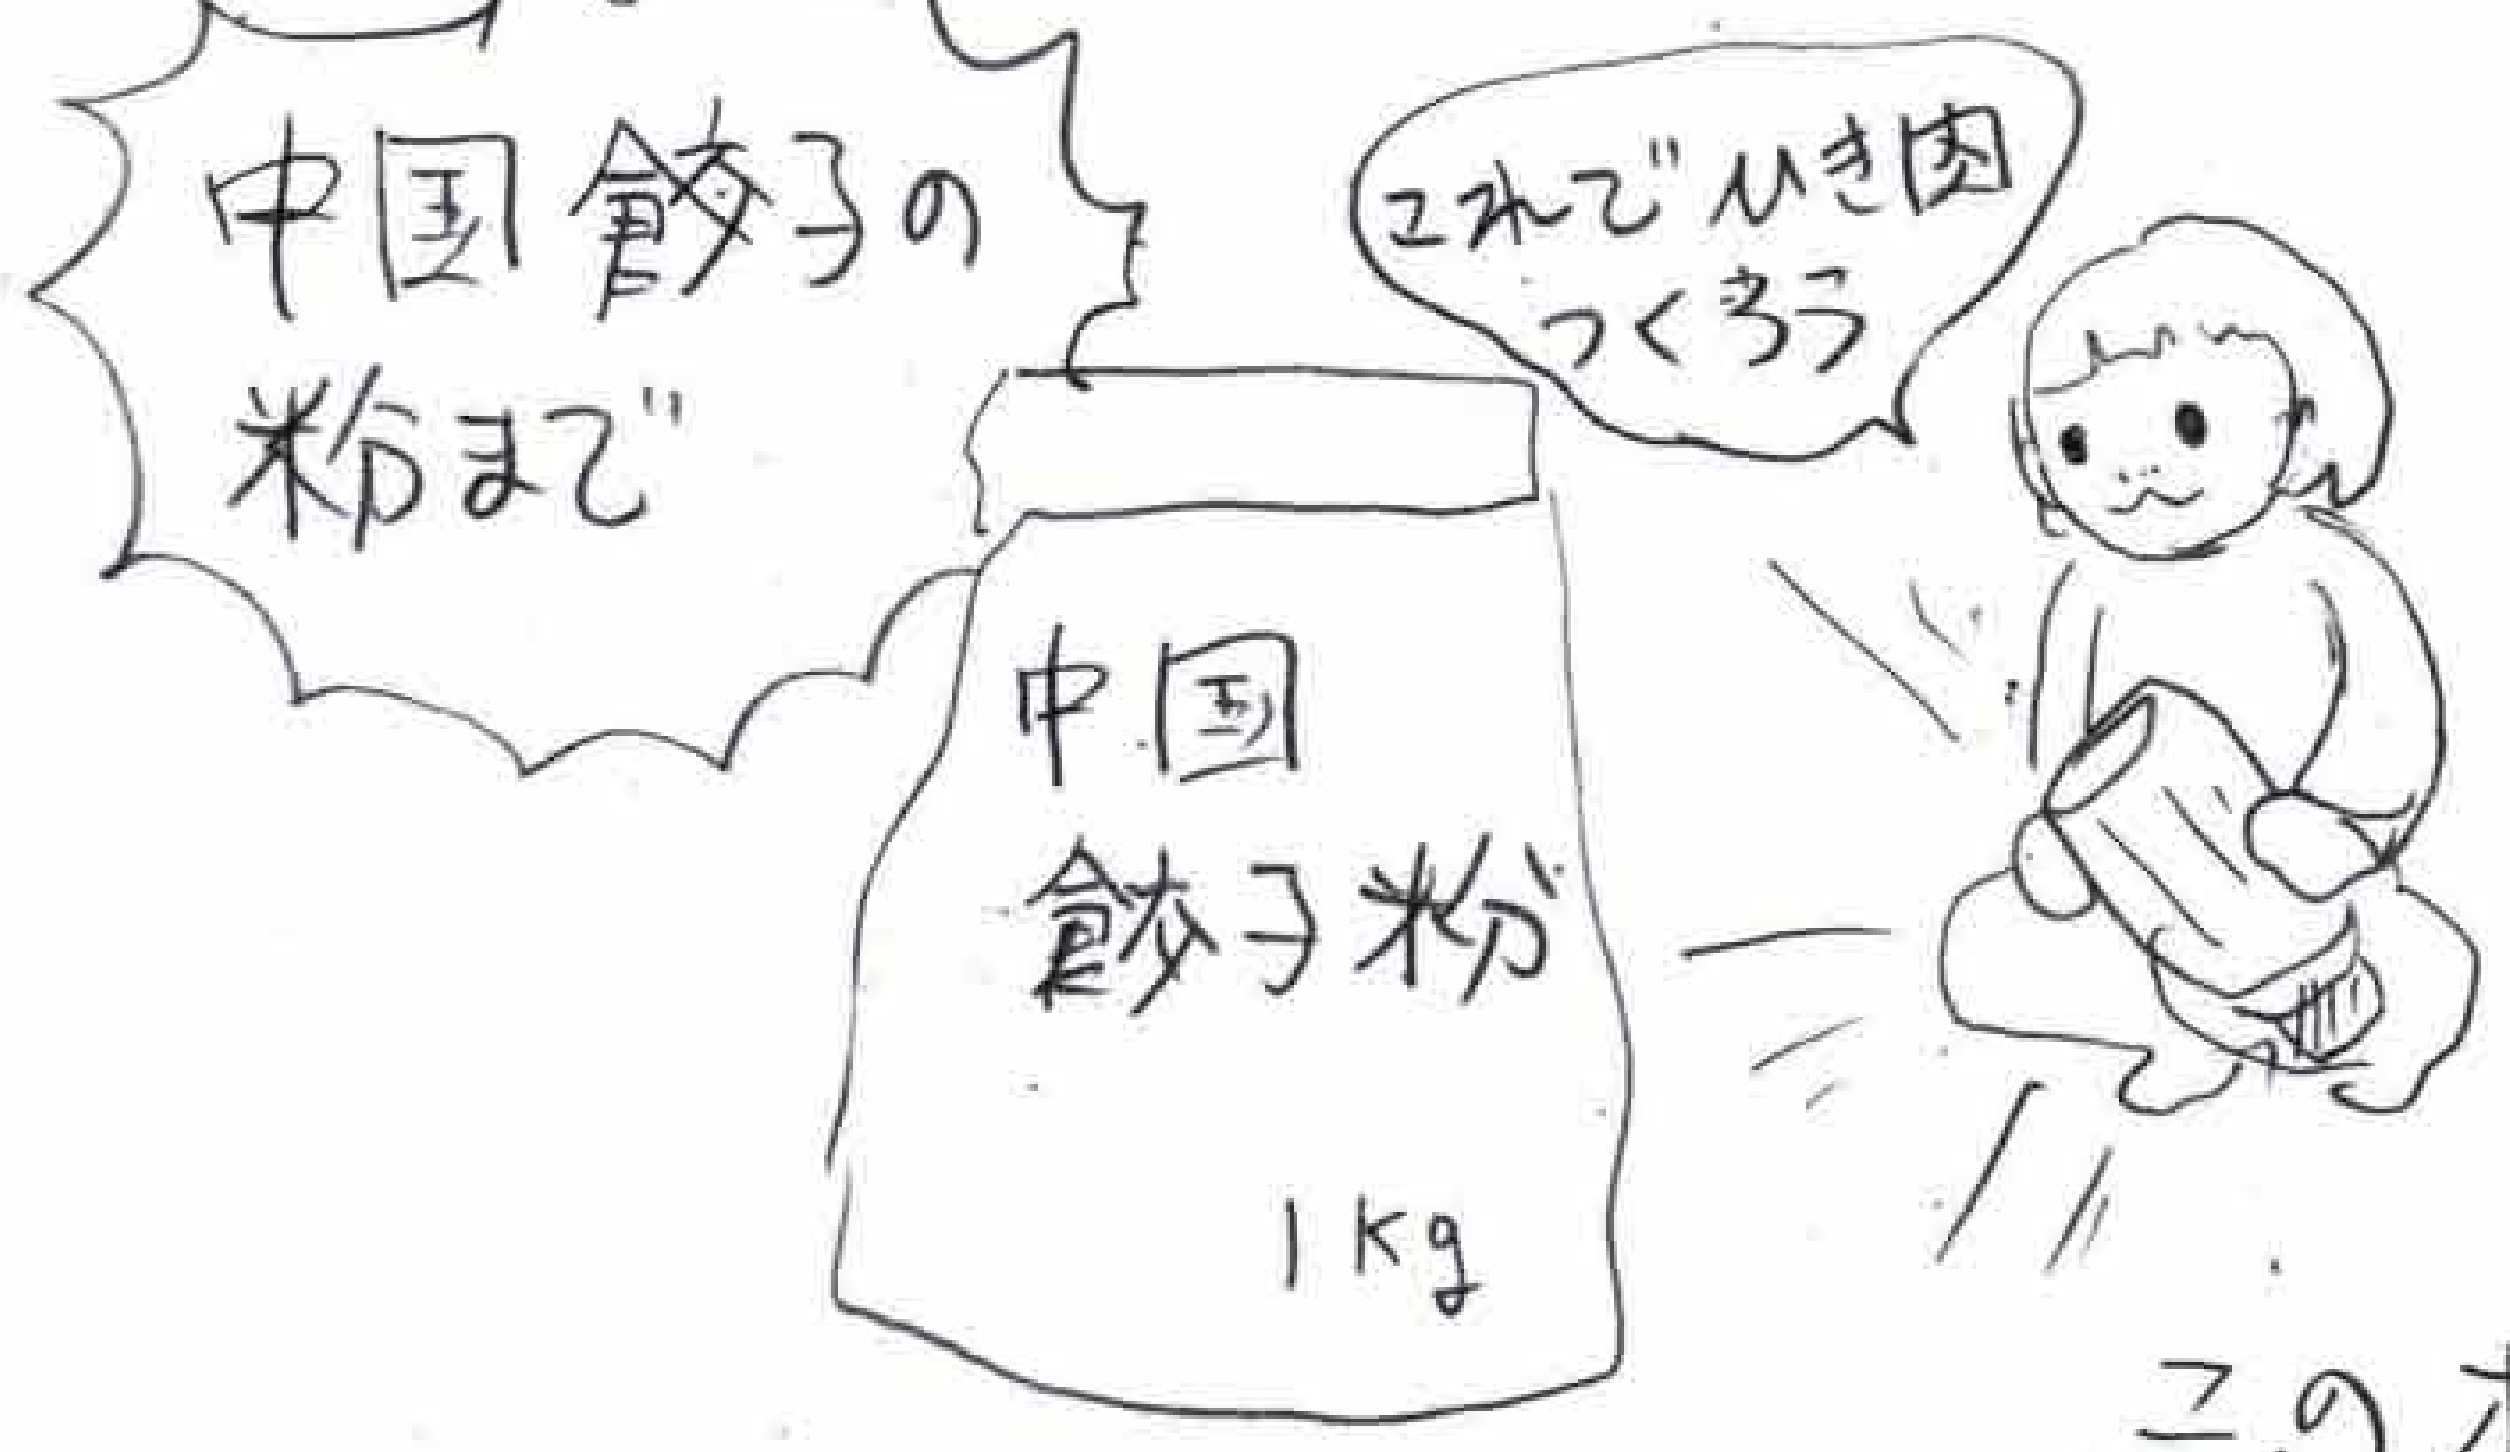 中国餃子の
粉まで
これでひき肉
つくろう
中国
餃子粉
1kg
この